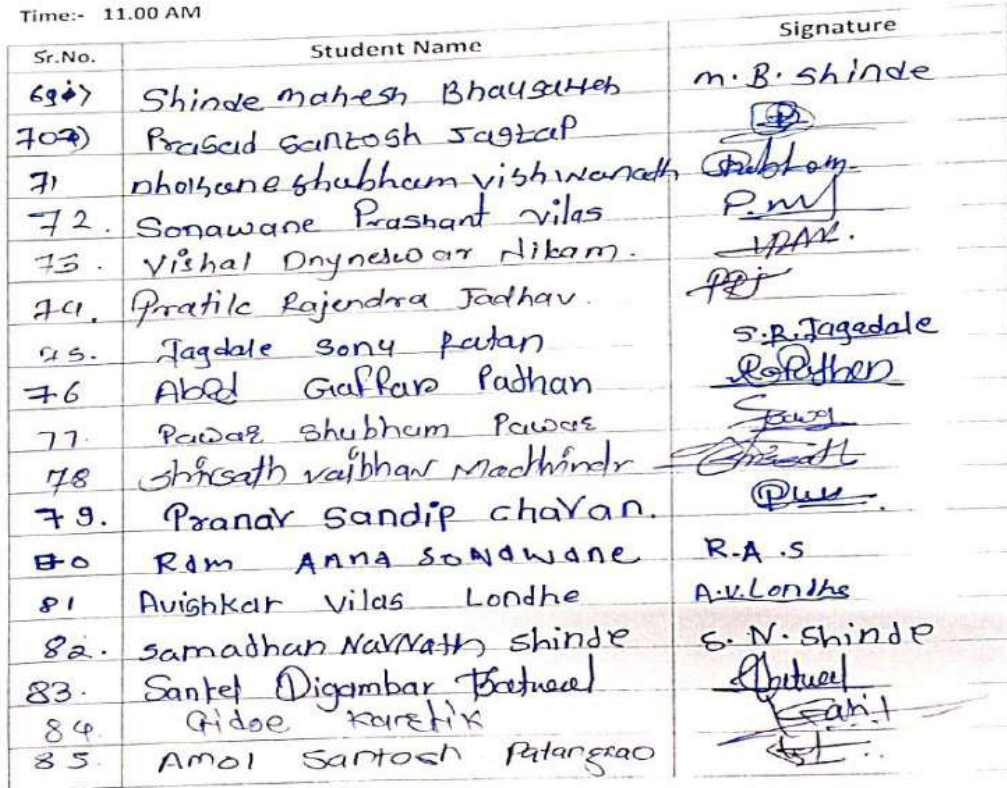 Time:- 11.00 AM
Sr.No. Student Name Signature
69) Shinde mahesh Bhausaheb m. B. Shinde
70) Prasad Santosh Jagtap
71 Dholsane Shubham vishwanath Shubham
72. Sonawane Prashant vilas P.
73. Vishal Dnyneswar Nikam.
74. Pratik Rajendra Jadhav.
75. Jagdale Sony Ratan S.R.Jagadale
76 Gaffar Padhan
77. Pawar Shubham Pawar
78 Shirsath vaibhav Machhindr Shirsath
79. Pranav Sandip chavan.
80 Ram ANNA SONAWANE R.A.S
81 Avishkar Vilas Londhe A.V.Londhe
82. Samadhan NavNath Shinde S. N. Shinde
83. Sanket Digambar
84. Kartik
85. Amol Santosh Patangrao